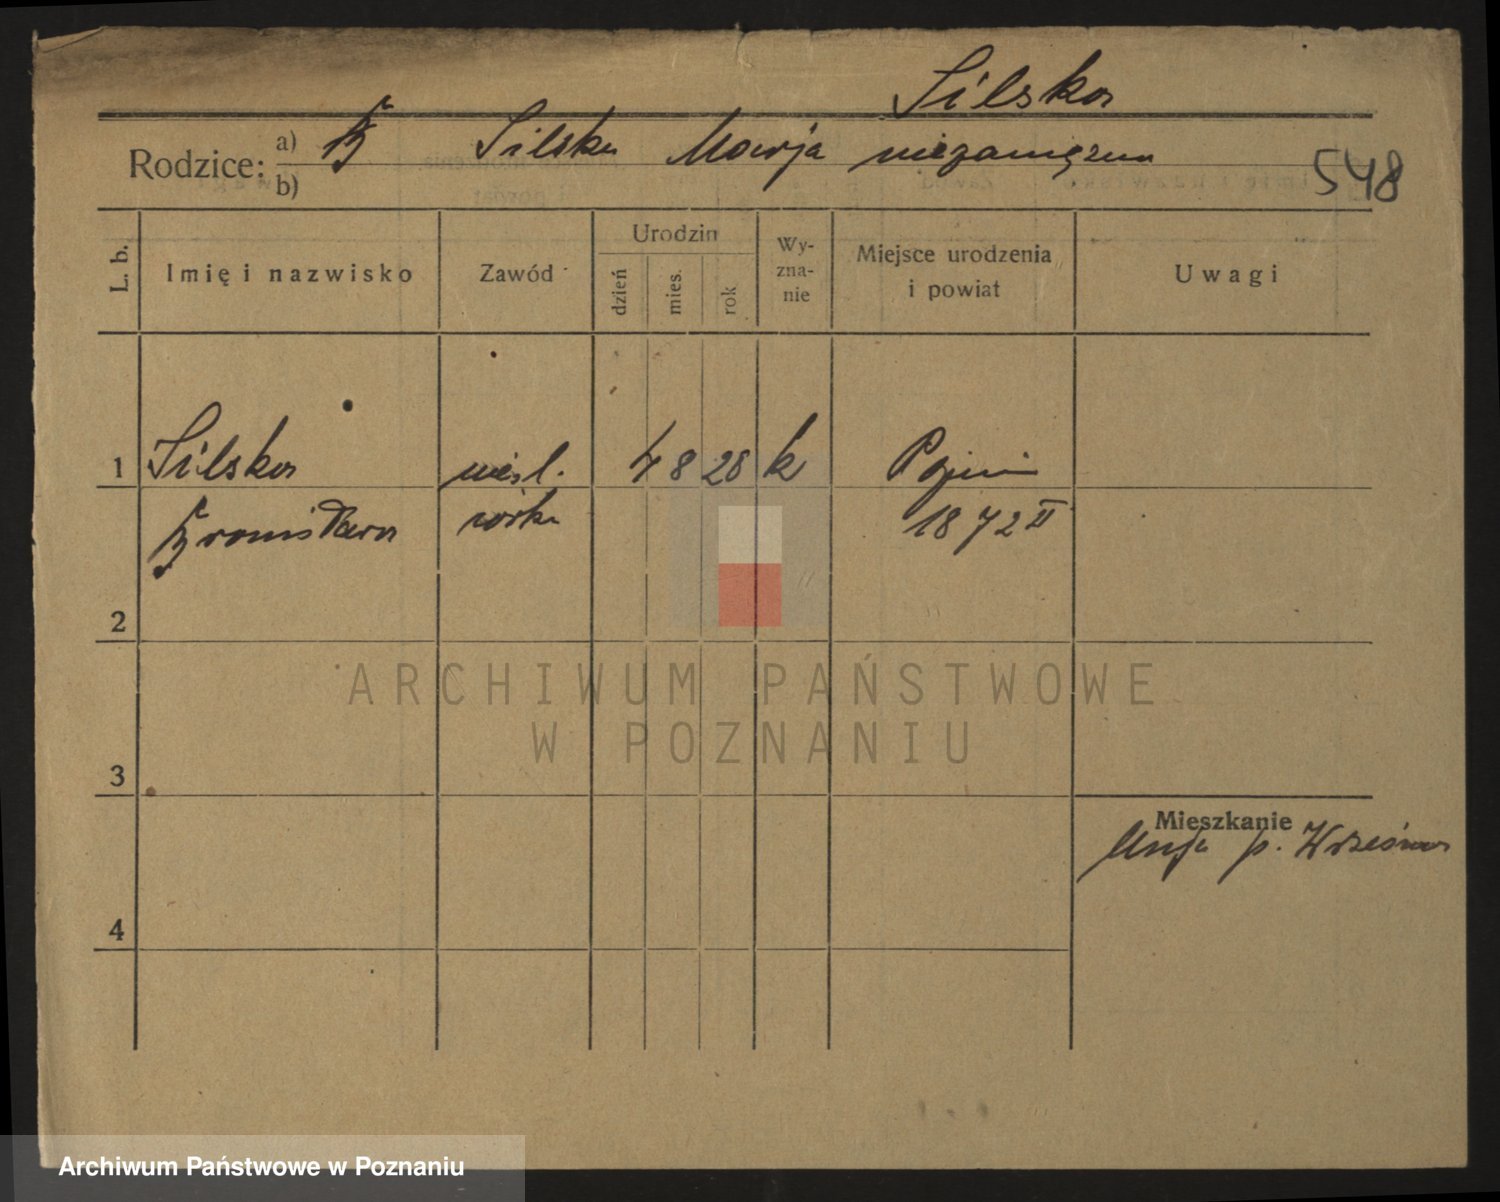 Silska
Rodzice: a) B Silska Marja niezamężna
b)
548
L. b.
Imię i nazwisko
Zawód
Urodzin
dzień
mies.
rok
Wy-
zna-
nie
Miejsce urodzenia
i powiat
Uwagi
1 Silska nieśl. 4 8 28 k
Bronisława córka 1872 II
2
3
Mieszkanie
p. Września
4
ARCHIWUM PAŃSTWOWE
W POZNANIU
Archiwum Państwowe w Poznaniu